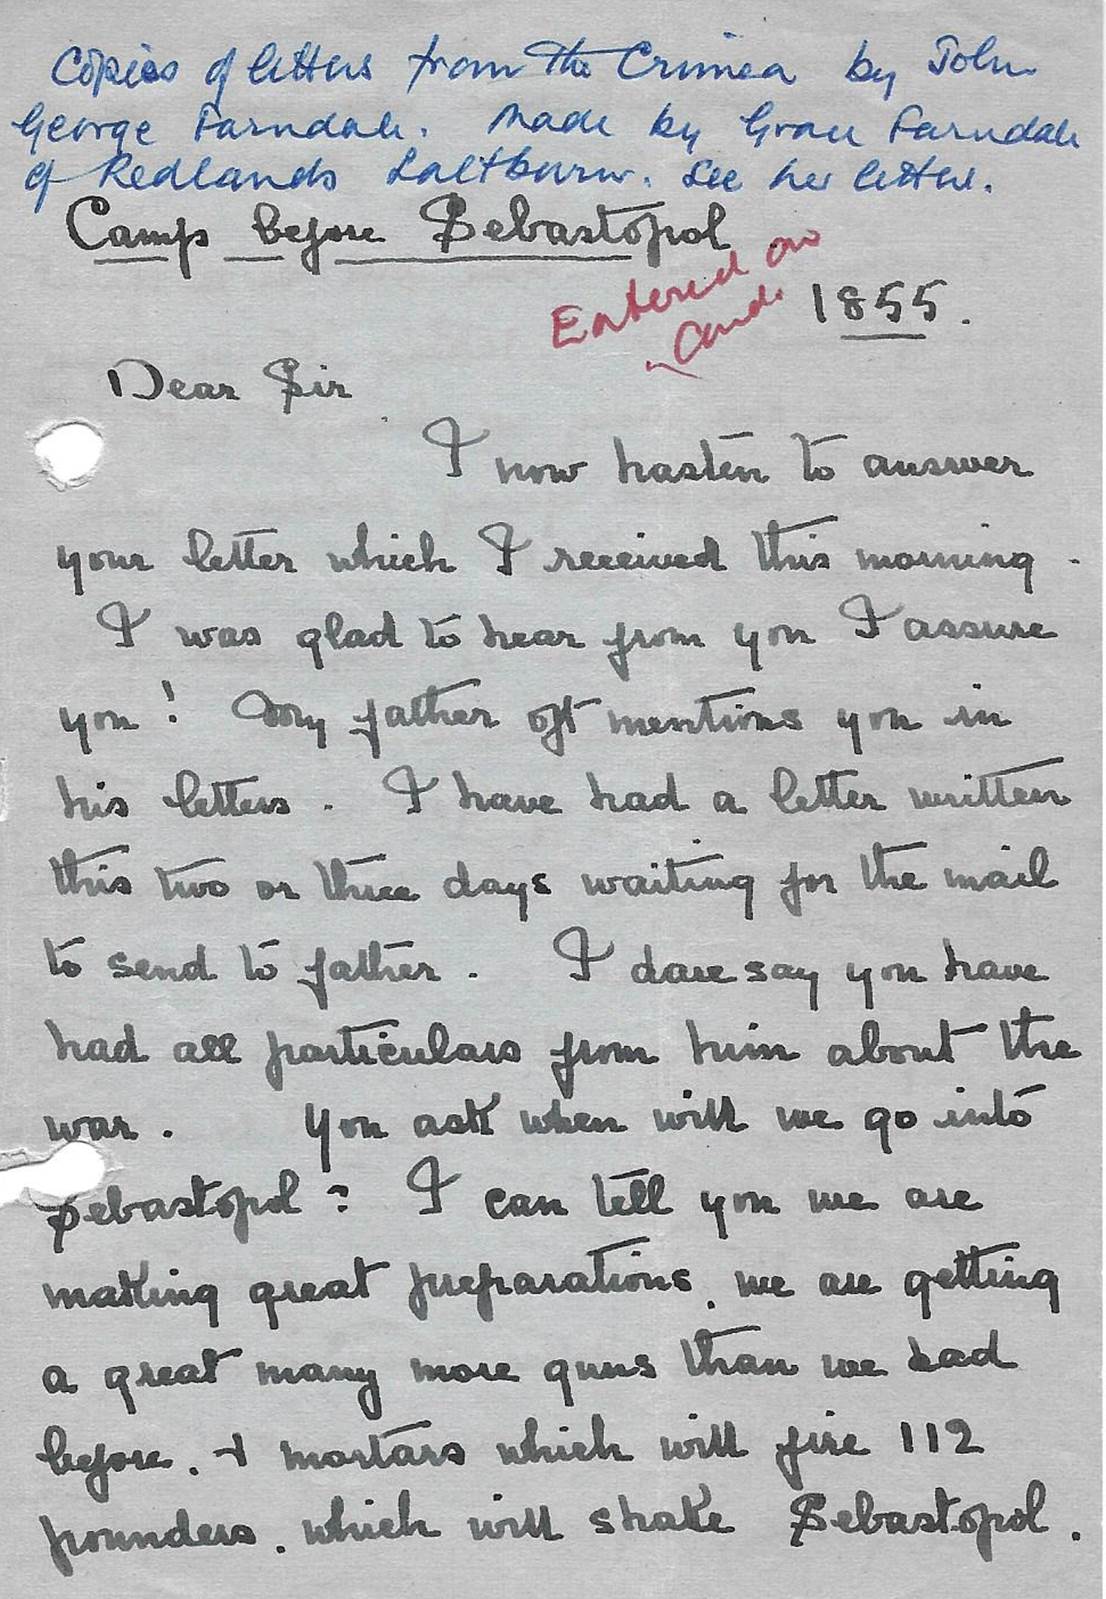 Copies of letters from the Crimea by John
George Farndale. Made by Grace Farndale
of Redlands Saltburn. See her letter.
Camp before Sebastopol
Entered on
Card.
1855.
Dear Sir
I now hasten to answer
your letter which I received this morning.
I was glad to hear from you I assure
you! My father oft mentions you in
his letters. I have had a letter written
this two or three days waiting for the mail
to send to father. I dare say you have
had all particulars from him about the
war. You ask when will we go into
Sebastopol? I can tell you we are
making great preparations, we are getting
a great many more guns than we had
before. & mortars which will fire 112
pounders. which will shake Sebastopol.